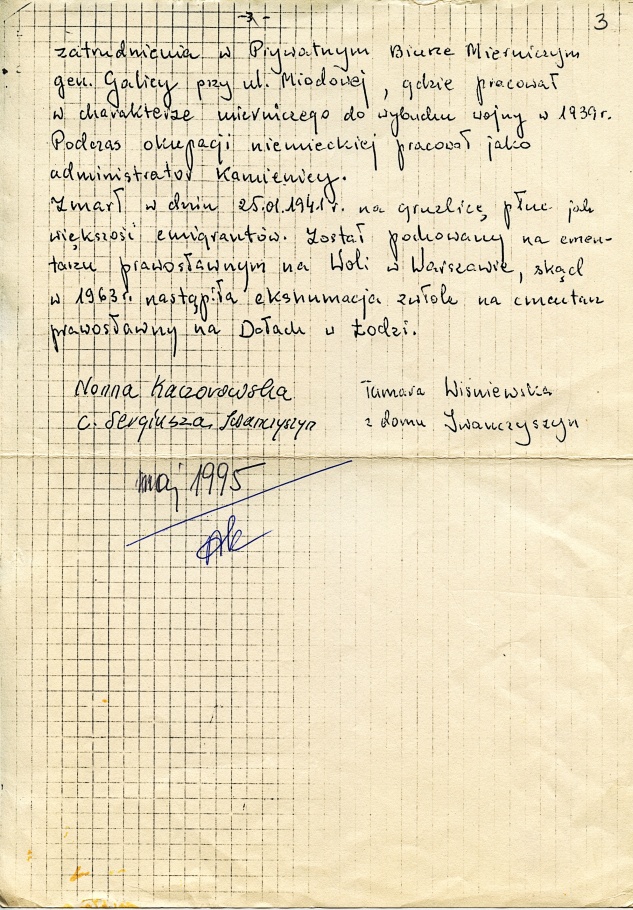 -3-
3
zatrudnienia w Prywatnym Biurze Mierniczym
gen. Galicy przy ul. Miodowej, gdzie pracował
w charakterze mierniczego do wybuchu wojny w 1939r.
Podczas okupacji niemieckiej pracował jako
administrator Kamienicy.
Zmarł w dniu 25.01.1941r. na gruźlicę płuc jak
większość emigrantów. Został pochowany na cmen-
tarzu prawosławnym na Woli w Warszawie, skąd
w 1963r. nastąpiła ekshumacja zwłok na cmentarz
prawosławny na Dołach w Łodzi.
Nonna Kaczorowska
c. Sergiusza Iwanczyszyn
Tamara Wiśniewska
z domu Iwanczyszyn
maj 1995